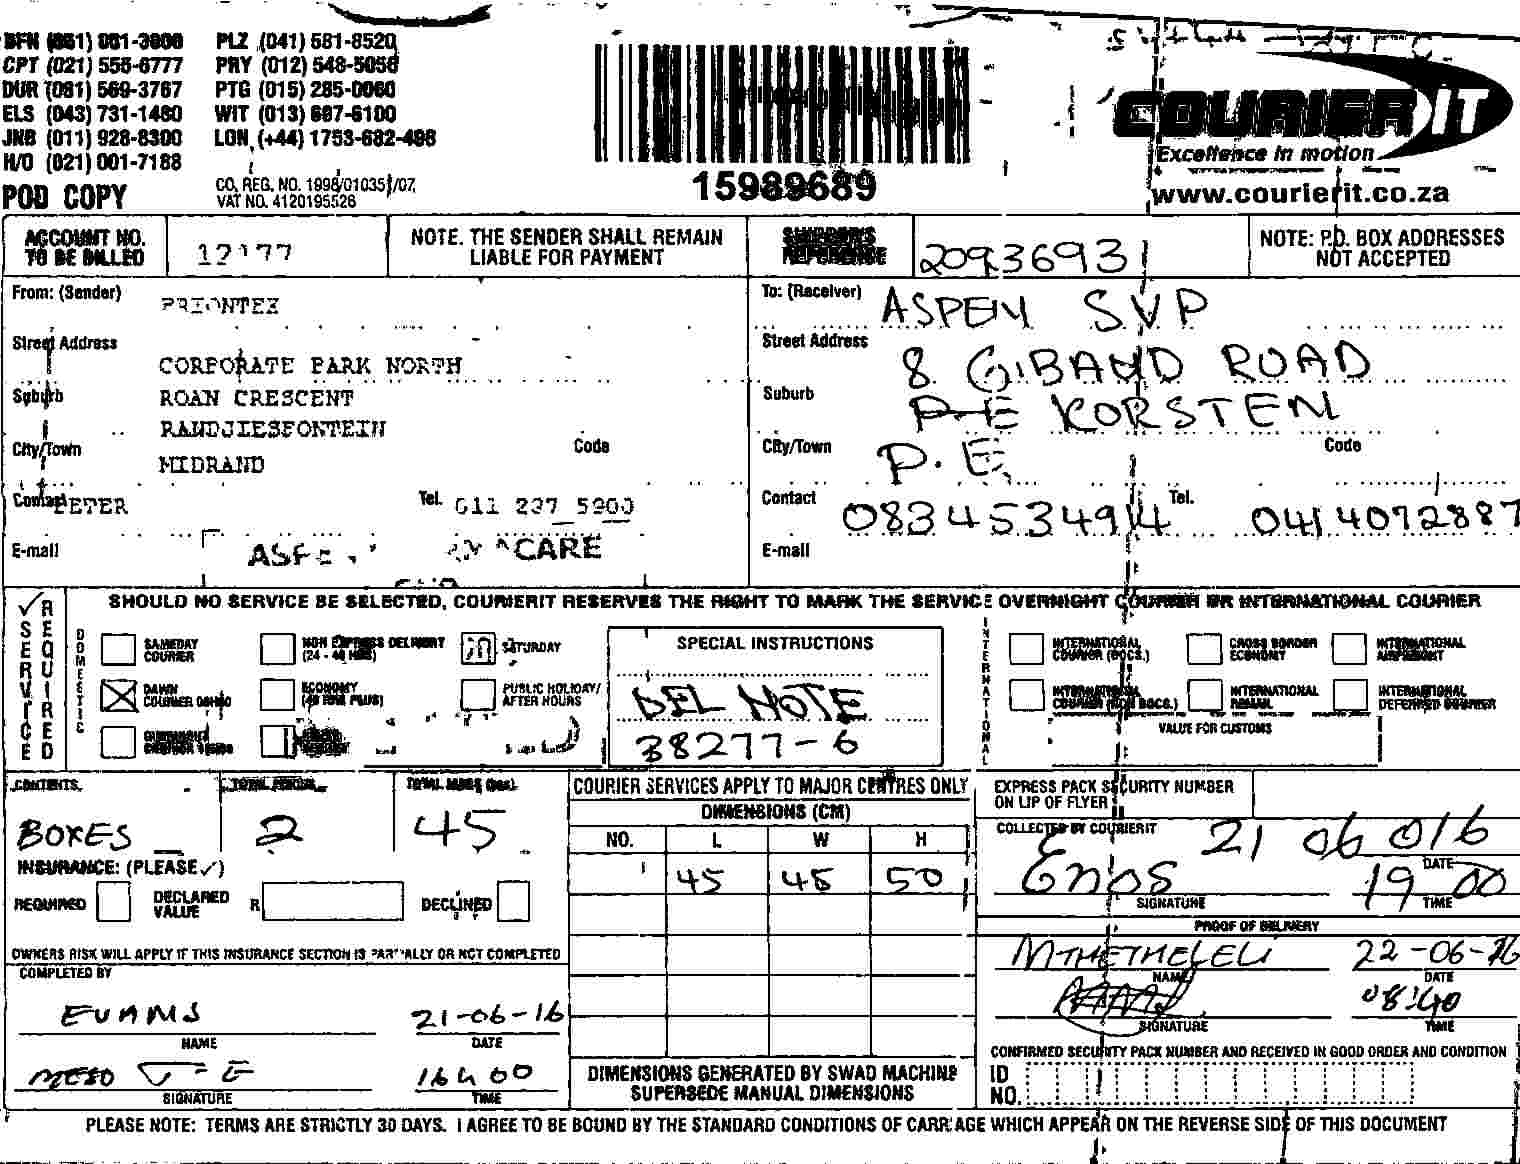 PLZ (041) 581-8520
CPT (021) 555-6777 PRY (012) 548-5056
DUR (081) 569-3767 PTG (015) 285-0060
ELS (043) 731-1480 WIT (013) 687-6100
JNB (011) 928-8300 LON (+44) 1753-682-498
H/O (021) 001-7188
POD COPY
CO. REG. NO. 1998/010351/07
VAT NO. 4120195526
15989689
COURIER IT
Excellence in motion
www.courierit.co.za
ACCOUNT NO. TO BE BILLED
12177
NOTE. THE SENDER SHALL REMAIN LIABLE FOR PAYMENT
SHIPPER'S REFERENCE
20936931
NOTE: P.O. BOX ADDRESSES NOT ACCEPTED
From: (Sender) PRIONTEX
Street Address
CORPORATE PARK NORTH
Suburb ROAN CRESCENT
RANDJIESFONTEIN
City/Town Code
MIDRAND
Contact PETER Tel. 011 237 5900
E-mail CARE
To: (Receiver) ASPEN SVP
Street Address 8 GIBAUD ROAD
Suburb P.E KORSTEN
City/Town P.E Code
Contact 0834534914 Tel. 0414072887
E-mail
SERVICE REQUIRED
SHOULD NO SERVICE BE SELECTED, COURIERIT RESERVES THE RIGHT TO MARK THE SERVICE OVERNIGHT COURIER OR INTERNATIONAL COURIER
DOMESTIC
SAMEDAY COURIER
NON EXPRESS DELIVERY (24 - 48 HRS)
SATURDAY
DAWN COURIER
ECONOMY
PUBLIC HOLIDAY/ AFTER HOURS
SPECIAL INSTRUCTIONS
DEL NOTE
38277-6
INTERNATIONAL
INTERNATIONAL COURIER (DOCS.)
CROSS BORDER ECONOMY
INTERNATIONAL AIRFREIGHT
INTERNATIONAL COURIER (NON DOCS.)
INTERNATIONAL
INTERNATIONAL DEFERRED COURIER
VALUE FOR CUSTOMS
CONTENTS.
BOXES 2 45
INSURANCE: (PLEASE ✓)
REQUIRED DECLARED VALUE R DECLINED
OWNERS RISK WILL APPLY IF THIS INSURANCE SECTION IS PARTIALLY OR NOT COMPLETED
COMPLETED BY
EVANS 21-06-16
NAME DATE
16h00
SIGNATURE TIME
COURIER SERVICES APPLY TO MAJOR CENTRES ONLY
DIMENSIONS (CM)
NO. L W H
1 45 45 50
DIMENSIONS GENERATED BY SWAD MACHINE SUPERSEDE MANUAL DIMENSIONS
EXPRESS PACK SECURITY NUMBER ON LIP OF FLYER
COLLECTED BY COURIERIT 21 06 016
DATE
Enos 19 00
SIGNATURE TIME
PROOF OF DELIVERY
MTHETHELELI 22-06-16
NAME DATE
08:40
SIGNATURE TIME
CONFIRMED SECURITY PACK NUMBER AND RECEIVED IN GOOD ORDER AND CONDITION
ID NO.
PLEASE NOTE: TERMS ARE STRICTLY 30 DAYS. I AGREE TO BE BOUND BY THE STANDARD CONDITIONS OF CARRIAGE WHICH APPEAR ON THE REVERSE SIDE OF THIS DOCUMENT